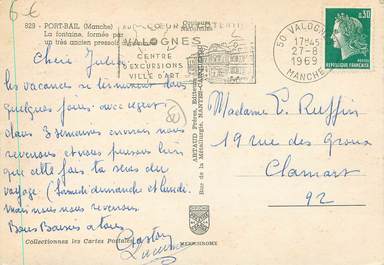 6€
823 - PORT-BAIL (Manche)
La fontaine, formée par
un très ancien pressoir
Couleurs
naturelles
VALOGNES
CENTRE
D'EXCURSIONS
VILLE D'ART
50 VALOGNES
17H45
27-8
1969
MANCHE
0,30
POSTES
REPUBLIQUE FRANÇAISE
Chère Julie
les vacances se terminent dans
quelques jours avec regret
dans 3 semaines environ nous
revenons et nous pensons bien
que cette fois tu seras du
voyage (Samedi dimanche et lundi.
mais nous nous revenons
Bons Baisers à tous
Gaston
Lucienne
ARTAUD Frères, Editeurs
Rue de la Métallurgie, NANTES
Madame E. Ruffin
119 rue des Groux
Clamart
92
Collectionnez les Cartes Postales
MEXICHROME